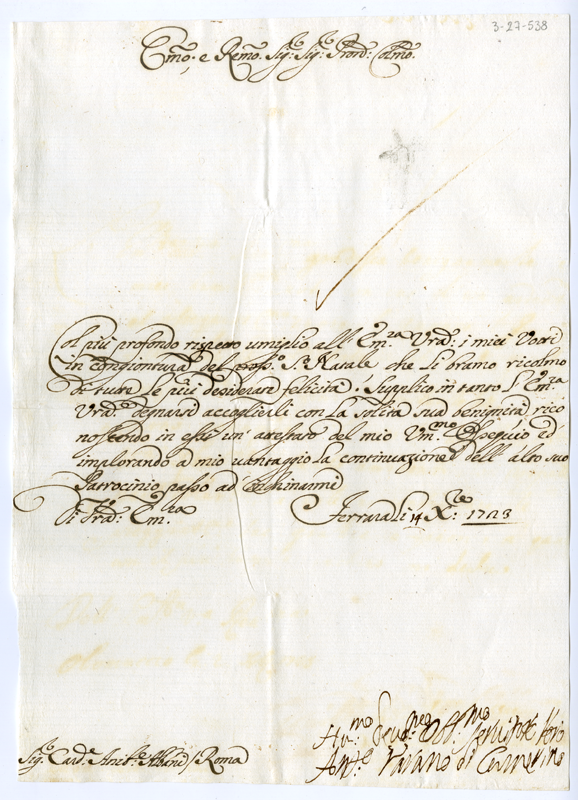 3-27-538
Em̃o. e Rem̃o. Sig:ʳ Sig:ʳ Pron: Colmo.
Col più profondo rispetto umiglio all' Em:za Vrã: i miei Voti
in congiontura del pross:o S. Natale che Li bramo ricolmo
di tutte le più desiderate felicità. Supplico in tanto l' Em:za
Vrã: degnarsi accoglierli con la solita sua benignità rico
noscendo in essi un' attestato del mio Um:mo Ossequio ed
implorando a mio vantaggio la continuazione dell' alto suo
Patrocinio passo ad inchinarmi
Di Vrã: Em:za Ferrara Li 14 Xbre: 1723
Hu:mo Deu:mo Obl:mo Seruitore Vero
Sig:r Card:e Anib:e Albani / Roma
Varano di Camerino